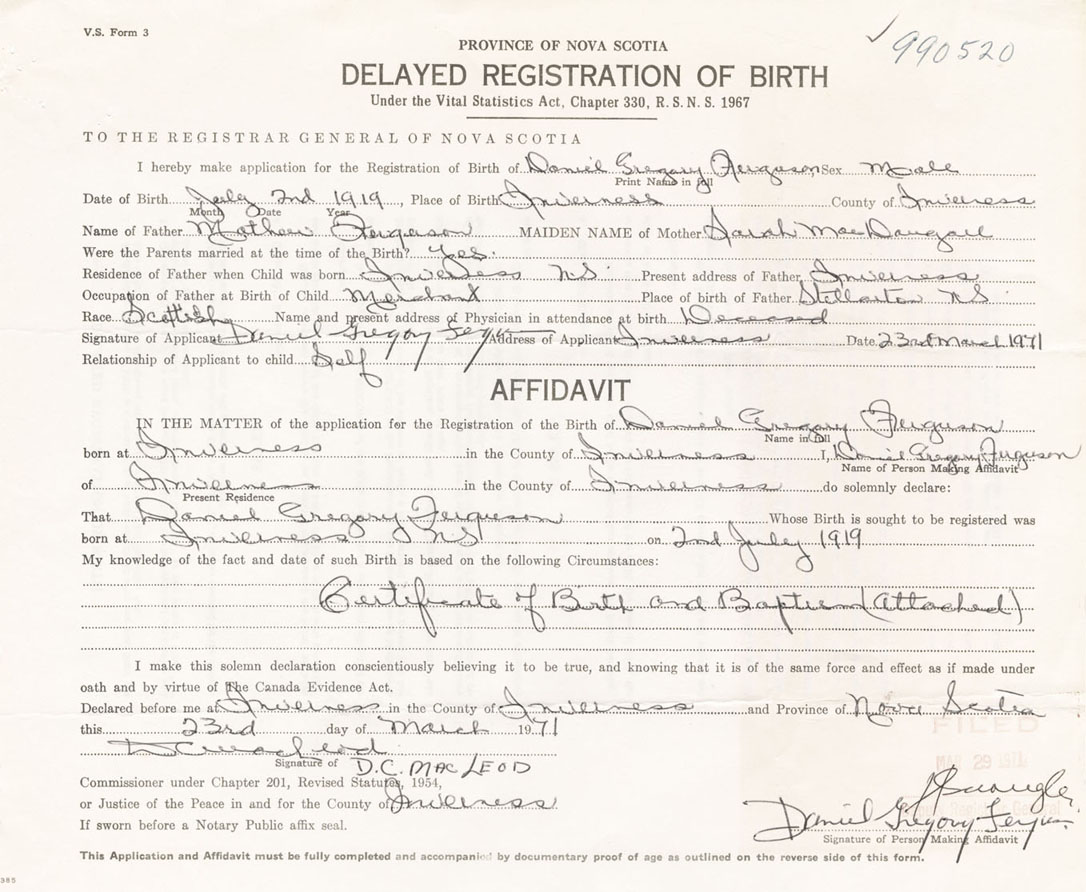 V.S. Form 3
990520
PROVINCE OF NOVA SCOTIA
DELAYED REGISTRATION OF BIRTH
Under the Vital Statistics Act, Chapter 330, R. S. N. S. 1967
TO THE REGISTRAR GENERAL OF NOVA SCOTIA
I hereby make application for the Registration of Birth of Daniel Gregory Ferguson Sex Male
Print Name in full
Date of Birth July 2nd 1919, Place of Birth Inverness County of Inverness
Month Date Year
Name of Father Mathew Ferguson MAIDEN NAME of Mother Sarah MacDougall
Were the Parents married at the time of the Birth? Yes.
Residence of Father when Child was born Inverness NS Present address of Father Inverness
Occupation of Father at Birth of Child Merchant Place of birth of Father Stellarton NS
Race Scottish Name and present address of Physician in attendance at birth Deceased
Signature of Applicant Daniel Gregory Ferguson Address of Applicant Inverness Date 23rd March 1971
Relationship of Applicant to child Self
AFFIDAVIT
IN THE MATTER of the application for the Registration of the Birth of Daniel Gregory Ferguson
Name in full
born at Inverness in the County of Inverness I, Daniel Gregory Ferguson
Name of Person Making Affidavit
of Inverness in the County of Inverness do solemnly declare:
Present Residence
That Daniel Gregory Ferguson Whose Birth is sought to be registered was
born at Inverness NS on 2nd July 1919
My knowledge of the fact and date of such Birth is based on the following Circumstances:
Certificate of Birth and Baptism (Attached)
I make this solemn declaration conscientiously believing it to be true, and knowing that it is of the same force and effect as if made under
oath and by virtue of the Canada Evidence Act.
Declared before me at Inverness in the County of Inverness and Province of Nova Scotia
this 23rd day of March 1971
FILED
D C MacLeod
MAR 29 1971
Signature of D.C. MAC LEOD
Commissioner under Chapter 201, Revised Statutes, 1954,
or Justice of the Peace in and for the County of Inverness
Registrar General
If sworn before a Notary Public affix seal.
Daniel Gregory Ferguson
Signature of Person Making Affidavit
This Application and Affidavit must be fully completed and accompanied by documentary proof of age as outlined on the reverse side of this form.
385